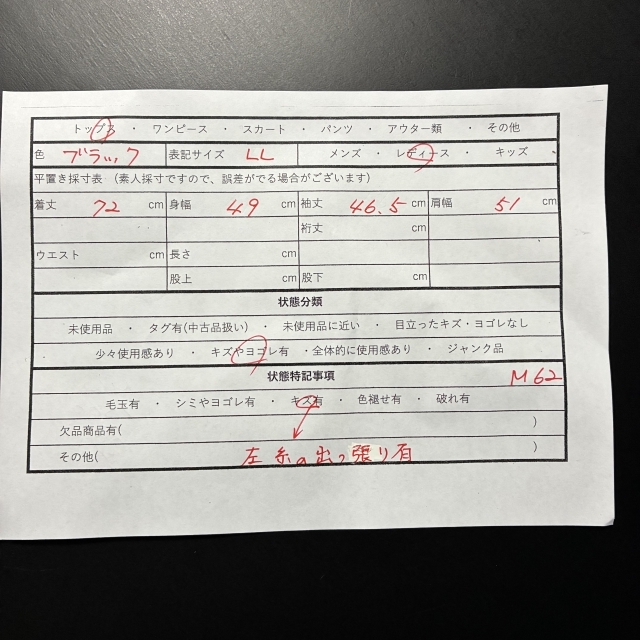 トップス ・ ワンピース ・ スカート ・ パンツ ・ アウター類 ・ その他
色 ブラック 表記サイズ LL メンズ ・ レディース ・ キッズ
平置き採寸表 (素人採寸ですので、誤差がでる場合がございます)
着丈 72 cm 身幅 49 cm 袖丈 46.5 cm 肩幅 51 cm
裄丈 cm
ウエスト cm 長さ cm
股上 cm 股下 cm
状態分類
未使用品 ・ タグ有(中古品扱い) ・ 未使用品に近い ・ 目立ったキズ・ヨゴレなし
少々使用感あり ・ キズやヨゴレ有 ・全体的に使用感あり ・ ジャンク品
状態特記事項 M62
毛玉有 ・ シミやヨゴレ有 ・ キズ有 ・ 色褪せ有 ・ 破れ有
欠品商品有( )
その他( 左 糸の出っ張り有 )